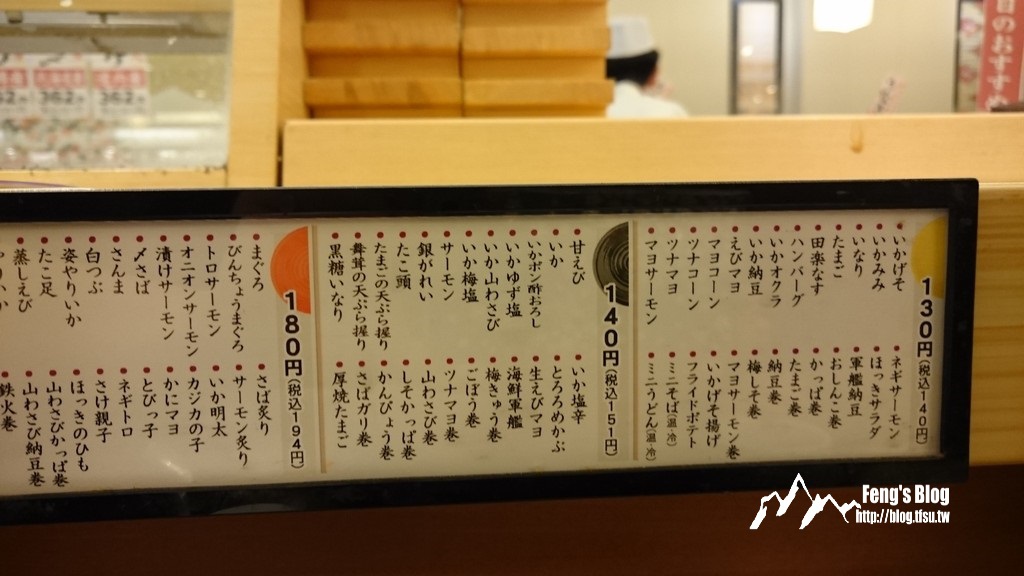 日のおすすめ
362
362
362
130円(税込140円)
いかげそ
いかみみ
いなり
たまご
田楽なす
ハンバーグ
いかオクラ
いか納豆
えびマヨ
マヨコーン
ツナコーン
ツナマヨ
マヨサーモン
ネギサーモン
ほっきサラダ
軍艦納豆
おしんこ巻
かっぱ巻
たまご巻
納豆巻
梅しそ巻
マヨサーモン巻
いかげそ揚げ
フライドポテト
ミニそば(温・冷)
ミニうどん(温・冷)
140円(税込151円)
甘えび
いか
いかポン酢おろし
いかゆず塩
いか山わさび
いか梅塩
サーモン
銀がれい
たこ頭
たまごの天ぷら握り
舞茸の天ぷら握り
黒糖いなり
いか塩辛
とろろめかぶ
生えびマヨ
海鮮軍艦
梅きゅう巻
ごぼう巻
ツナマヨ巻
山わさび巻
しそかっぱ巻
かんぴょう巻
さばガリ巻
厚焼たまご
180円(税込194円)
まぐろ
びんちょうまぐろ
トロサーモン
オニオンサーモン
漬けサーモン
〆さば
さんま
白つぶ
姿やりいか
たこ足
蒸しえび
やりいか
さば炙り
サーモン炙り
いか明太
カジカの子
かにマヨ
とびっ子
ネギトロ
さけ親子
ほっきのひも
山わさびかっぱ巻
山わさび納豆巻
鉄火巻
Feng's Blog
http://blog.tfsu.tw